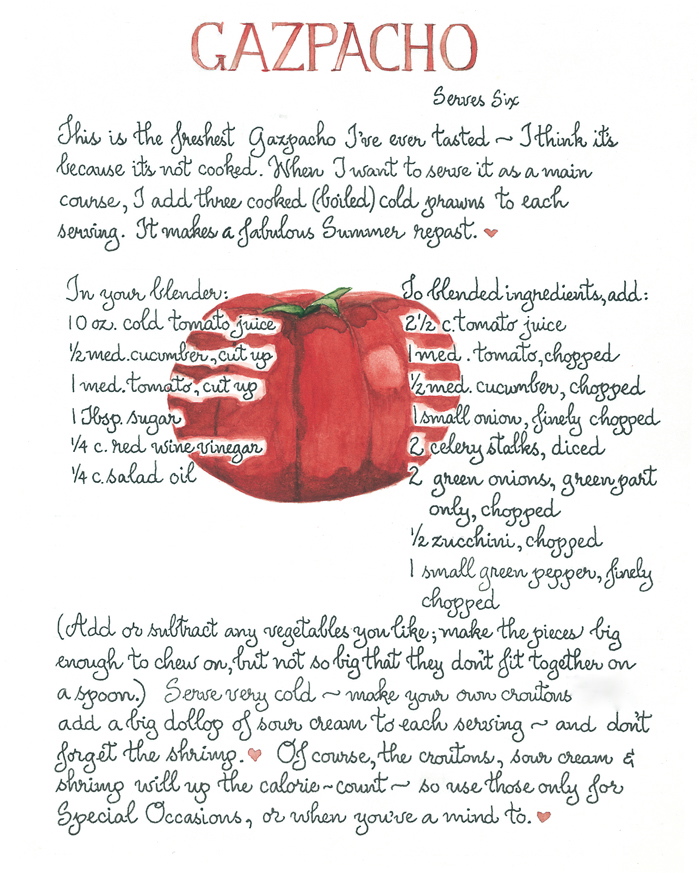 GAZPACHO
Serves Six
This is the freshest Gazpacho I've ever tasted ~ I think it's
because it's not cooked. When I want to serve it as a main
course, I add three cooked (boiled) cold prawns to each
serving. It makes a fabulous Summer repast. ♥
In your blender:
10 oz. cold tomato juice
½ med. cucumber, cut up
1 med. tomato, cut up
1 Tbsp. sugar
¼ c. red wine vinegar
¼ c. salad oil
To blended ingredients, add:
2½ c. tomato juice
1 med. tomato, chopped
½ med. cucumber, chopped
1 small onion, finely chopped
2 celery stalks, diced
2 green onions, green part
only, chopped
½ zucchini, chopped
1 small green pepper, finely
chopped
(Add or subtract any vegetables you like; make the pieces big
enough to chew on, but not so big that they don't fit together on
a spoon.) Serve very cold ~ make your own croutons
add a big dollop of sour cream to each serving ~ and don't
forget the shrimp. ♥ Of course, the croutons, sour cream &
shrimp will up the calorie-count ~ so use those only for
Special Occasions, or when you've a mind to. ♥